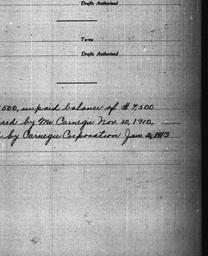 Drafts Authorized
Terms
Drafts Authorized
500, unpaid balance of $7,500
ised by Mr. Carnegie Nov. 30, 1910,
by Carnegie Corporation Jan 2, 1913